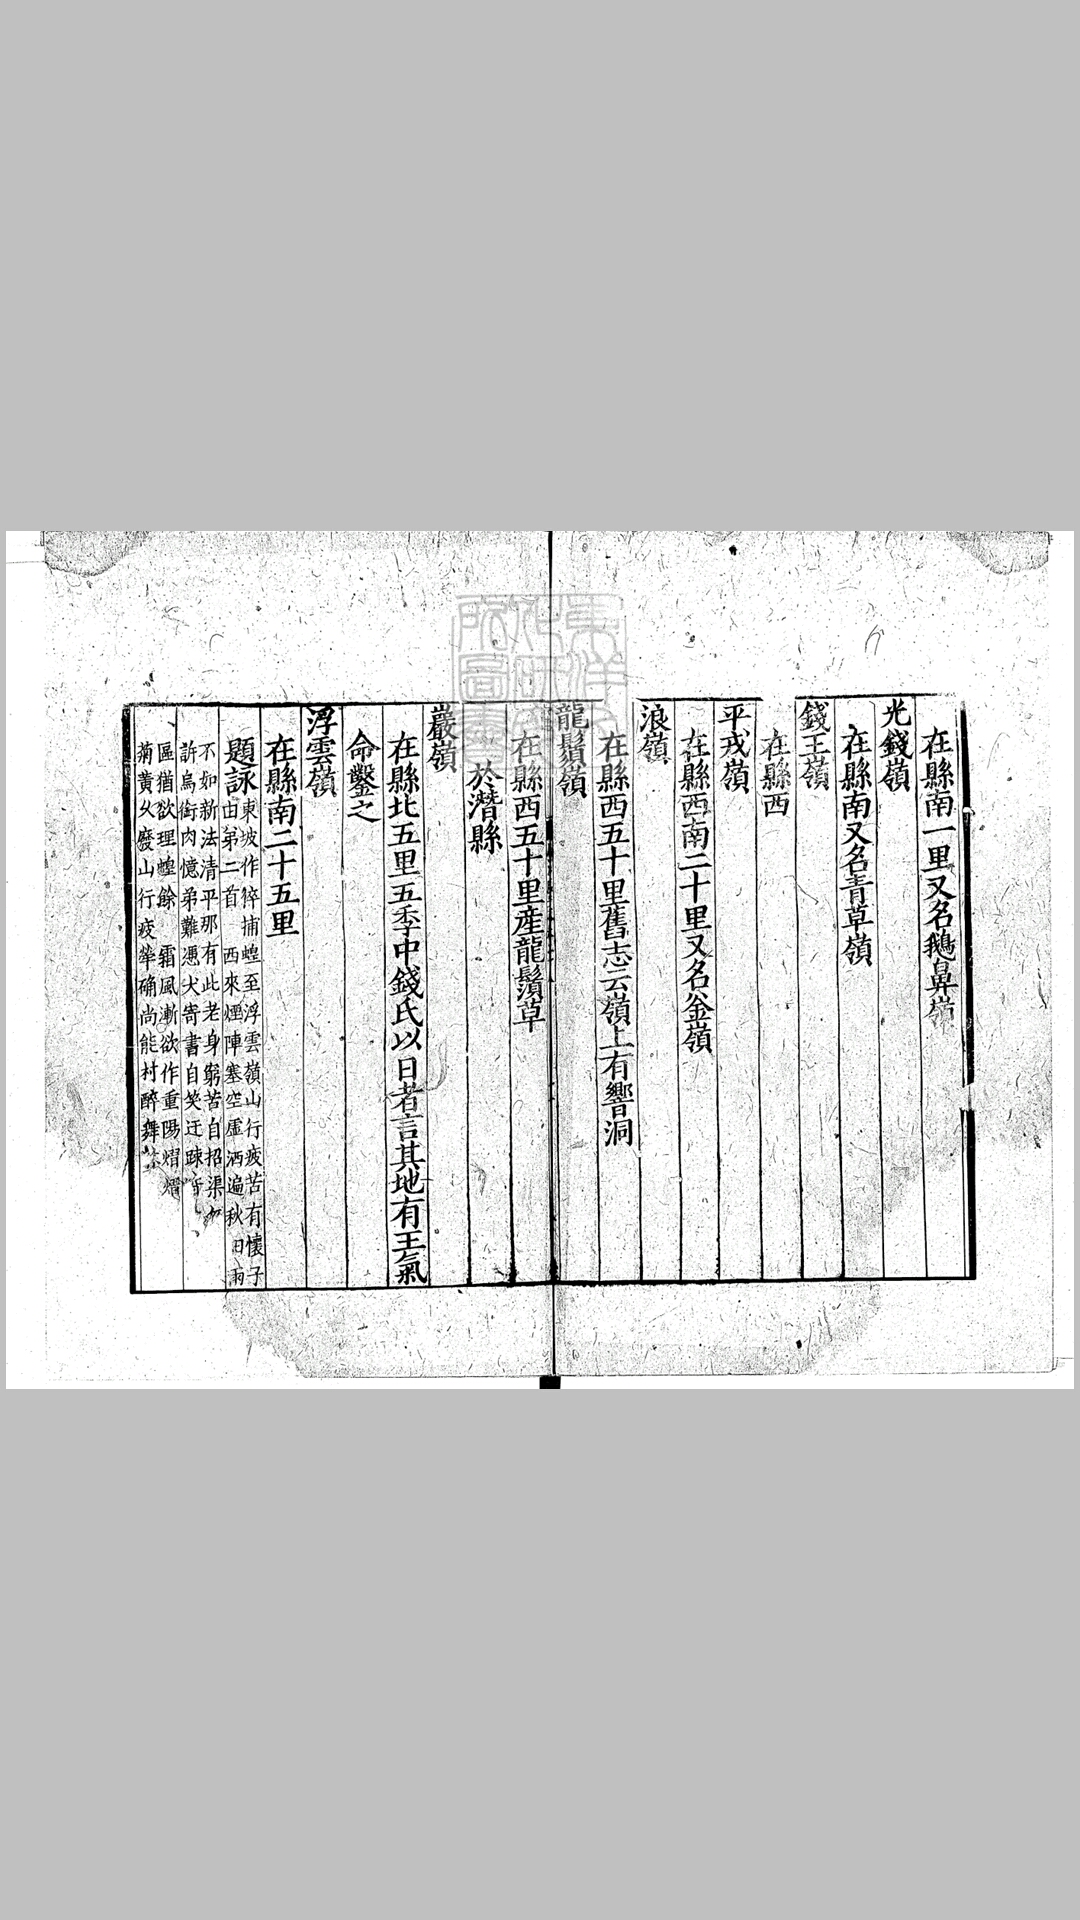 在縣南一里又名鵝鼻嶺
光錢嶺
在縣南又名青草嶺
錢王嶺
在縣西
平戎嶺
在縣西南二十里又名釜嶺
浪嶺
在縣西五十里舊志云嶺上有響洞
龍鬚嶺
在縣西五十里産龍鬚草
於潛縣
巖嶺
在縣北五里五季中錢氏以日者言其地有王氣
命鑿之
浮雲嶺
在縣南二十五里
題詠
東坡作猝捕蝗至浮雲嶺山行疲苦有懷子
由弟二首 西來煙陣塞空虛洒遍秋田雨
不如新法清平那有此老身窮苦自招渠
許烏銜肉憶弟難憑犬寄書自笑迂踈
區猶欲理蝗餘 霜風漸欲作重陽熠熠
菊黃久廢山行疲犖确尚能村醉舞